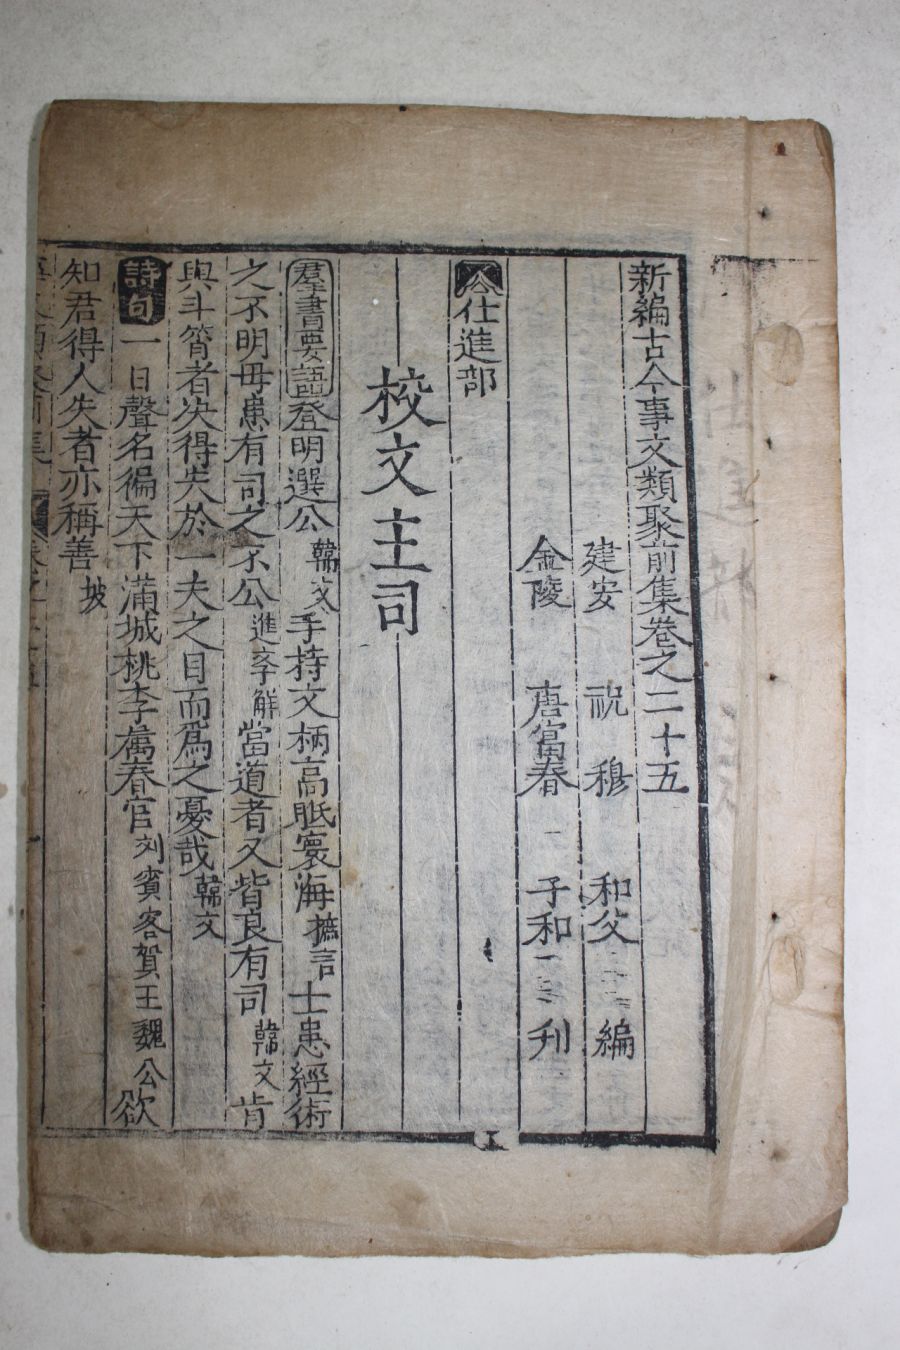 新編古今事文類聚前集卷之二十五
建安 祝 穆 和父 編
金陵 唐富春 子和 刋
仕進部
校文主司
羣書要語登明選公韓文手持文柄高眡寰海摭言士患經術
之不明毋患有司之不公進學解當道者又皆良有司韓文肯
與斗筲者决得失於一夫之目而爲之憂哉韓文
詩句一日聲名徧天下滿城桃李屬春官刘賓客賀王魏公欲
知君得人失者亦稱善坡